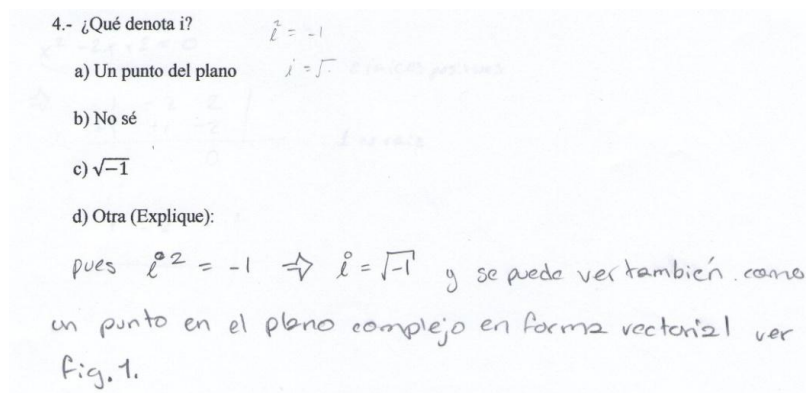 4.- ¿Qué denota i?
i² = -1
a) Un punto del plano
i = √
b) No sé
c) √-1
d) Otra (Explique):
pues i² = -1 ⇒ i = √-1 y se puede ver también como
un punto en el plano complejo en forma vectorial ver
fig. 1.